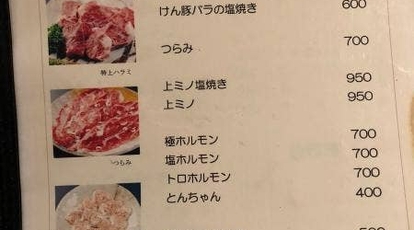 けん豚バラの塩焼き 600
つらみ 700
特上ハラミ
上ミノ塩焼き 950
上ミノ 950
つらみ
極ホルモン 700
塩ホルモン 700
トロホルモン 700
とんちゃん 400